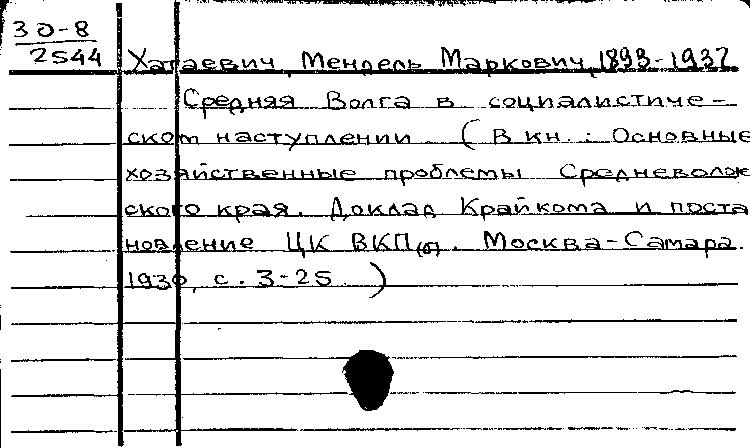 30-8
2544
Хатаевич, Мендель Маркович, 1893-1937
Средняя Волга в социалистиче-
ском наступлении. (В кн.: Основные
хозяйственные проблемы Средневолж
ского края. Доклад Крайкома и поста
новление ЦК ВКП(б). Москва-Самара.
1930, с. 3-25.)